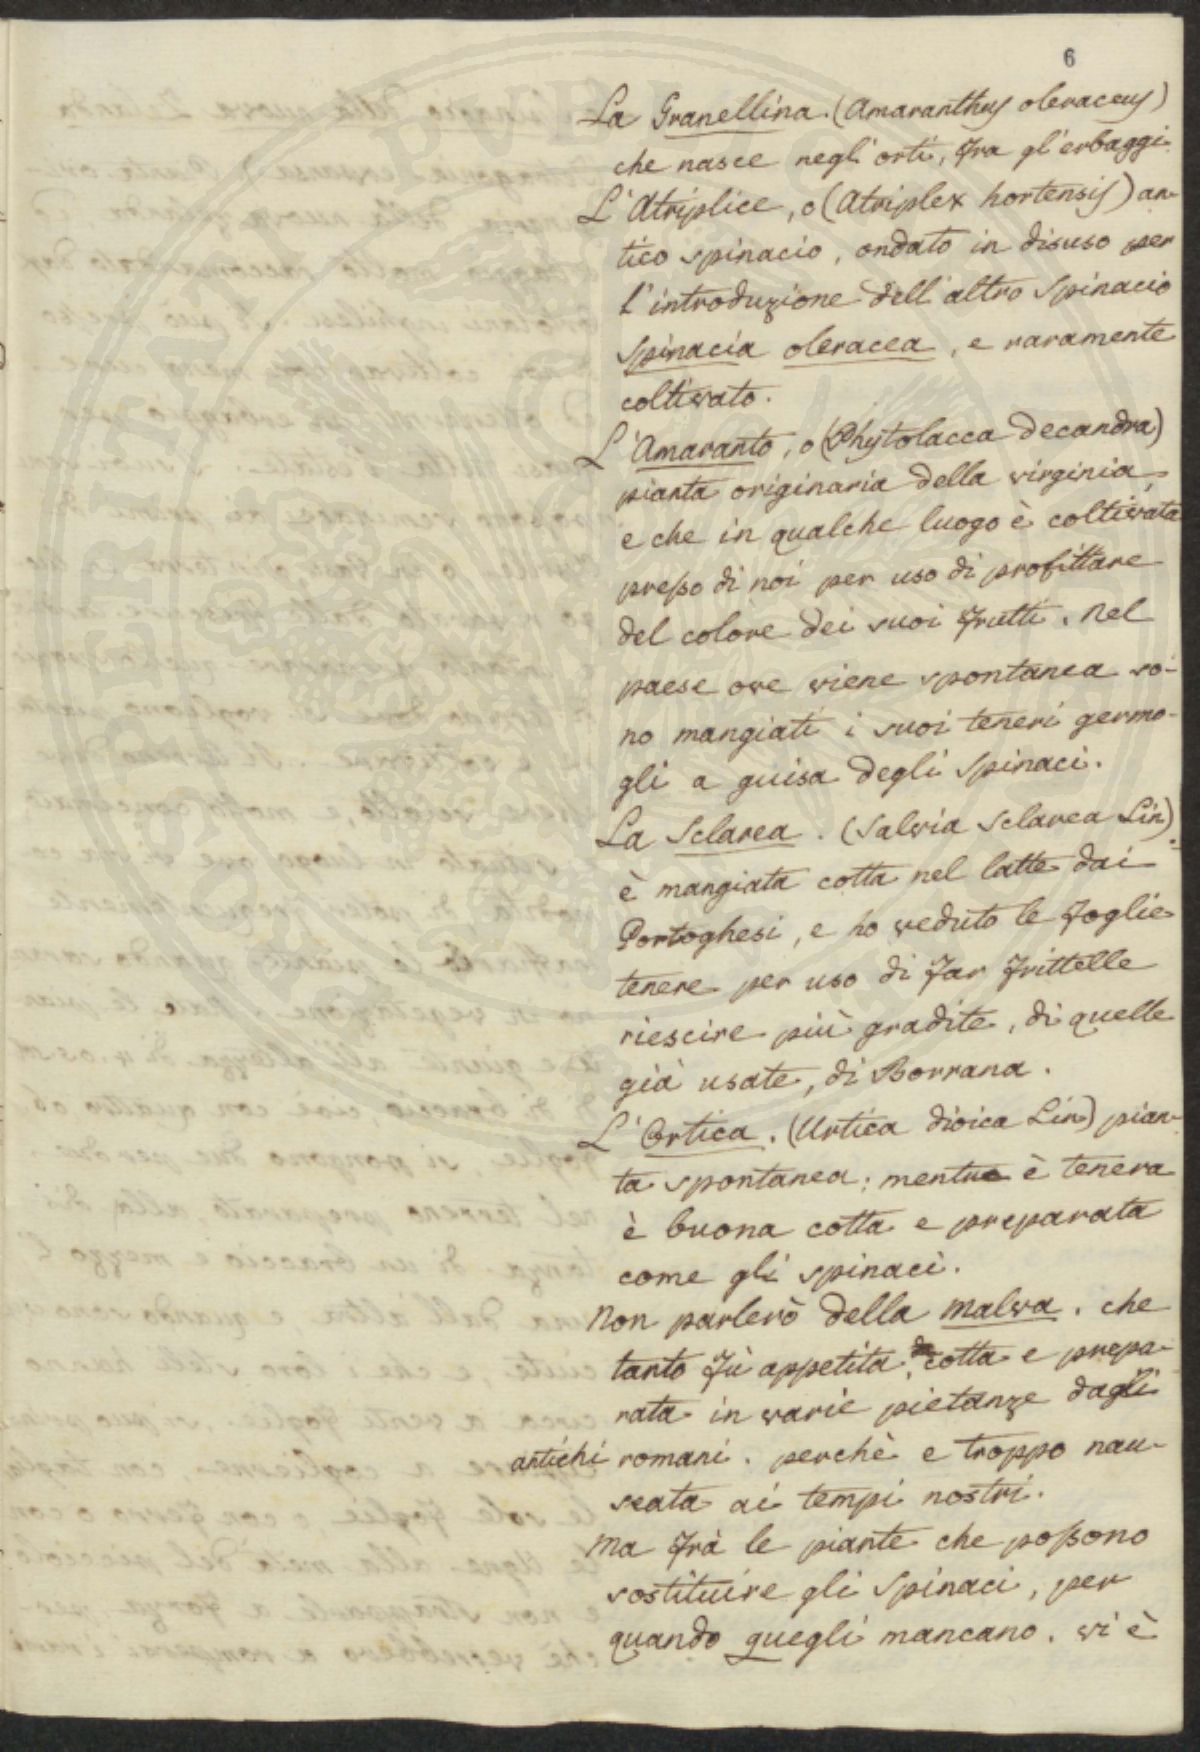 6
La Granellina. (Amaranthus oleraceus)
che nasce negl'orti, fra gl'erbaggi
L'Atriplice, o (Atriplex hortensis) an-
tico spinacio, ondato in disuso per
l'introduzione dell'altro Spinacio
Spinacia oleracea, e raramente
coltivato.
L'Amaranto, o (Phytolacca decandra)
pianta originaria della virginia,
e che in qualche luogo è coltivata
presso di noi per uso di profittare
del colore dei suoi frutti. Nel
paese ove viene spontanea so-
no mangiati i suoi teneri germo-
gli a guisa degli Spinaci.
La Sclarea. (Salvia Sclarea Lin).
è mangiata cotta nel latte dai
Portoghesi, e ho veduto le foglie
tenere per uso di far frittelle
riescire più gradite, di quelle
già usate, di Borrana.
L'Ortica. (Urtica dioica Lin) pian-
ta spontanea; mentre è tenera
è buona cotta e preparata
come gli spinaci.
Non parlerò della malva. che
tanto fù appetita, cotta e prepa-
rata in varie pietanze dagli
antichi romani. perchè e troppo nau-
seata ai tempi nostri.
Ma frà le piante che possono
sostituire gli Spinaci, per
quando quegli mancano. vi è